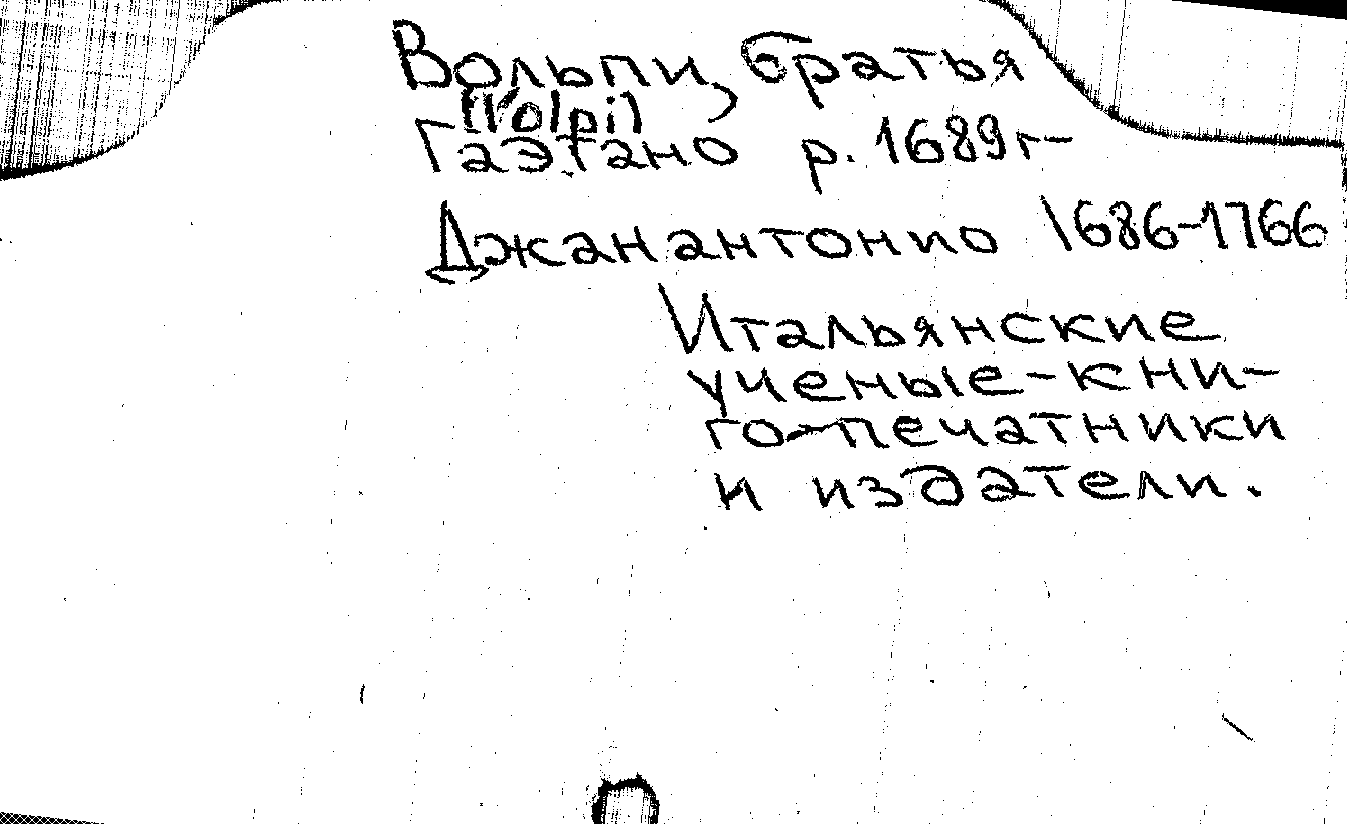 Вольпи, братья
[Volpi]
Гаэтано р. 1689 г-
Джанантонио 1686-1766
Итальянские
ученые-кни-
го-печатники
и издатели.